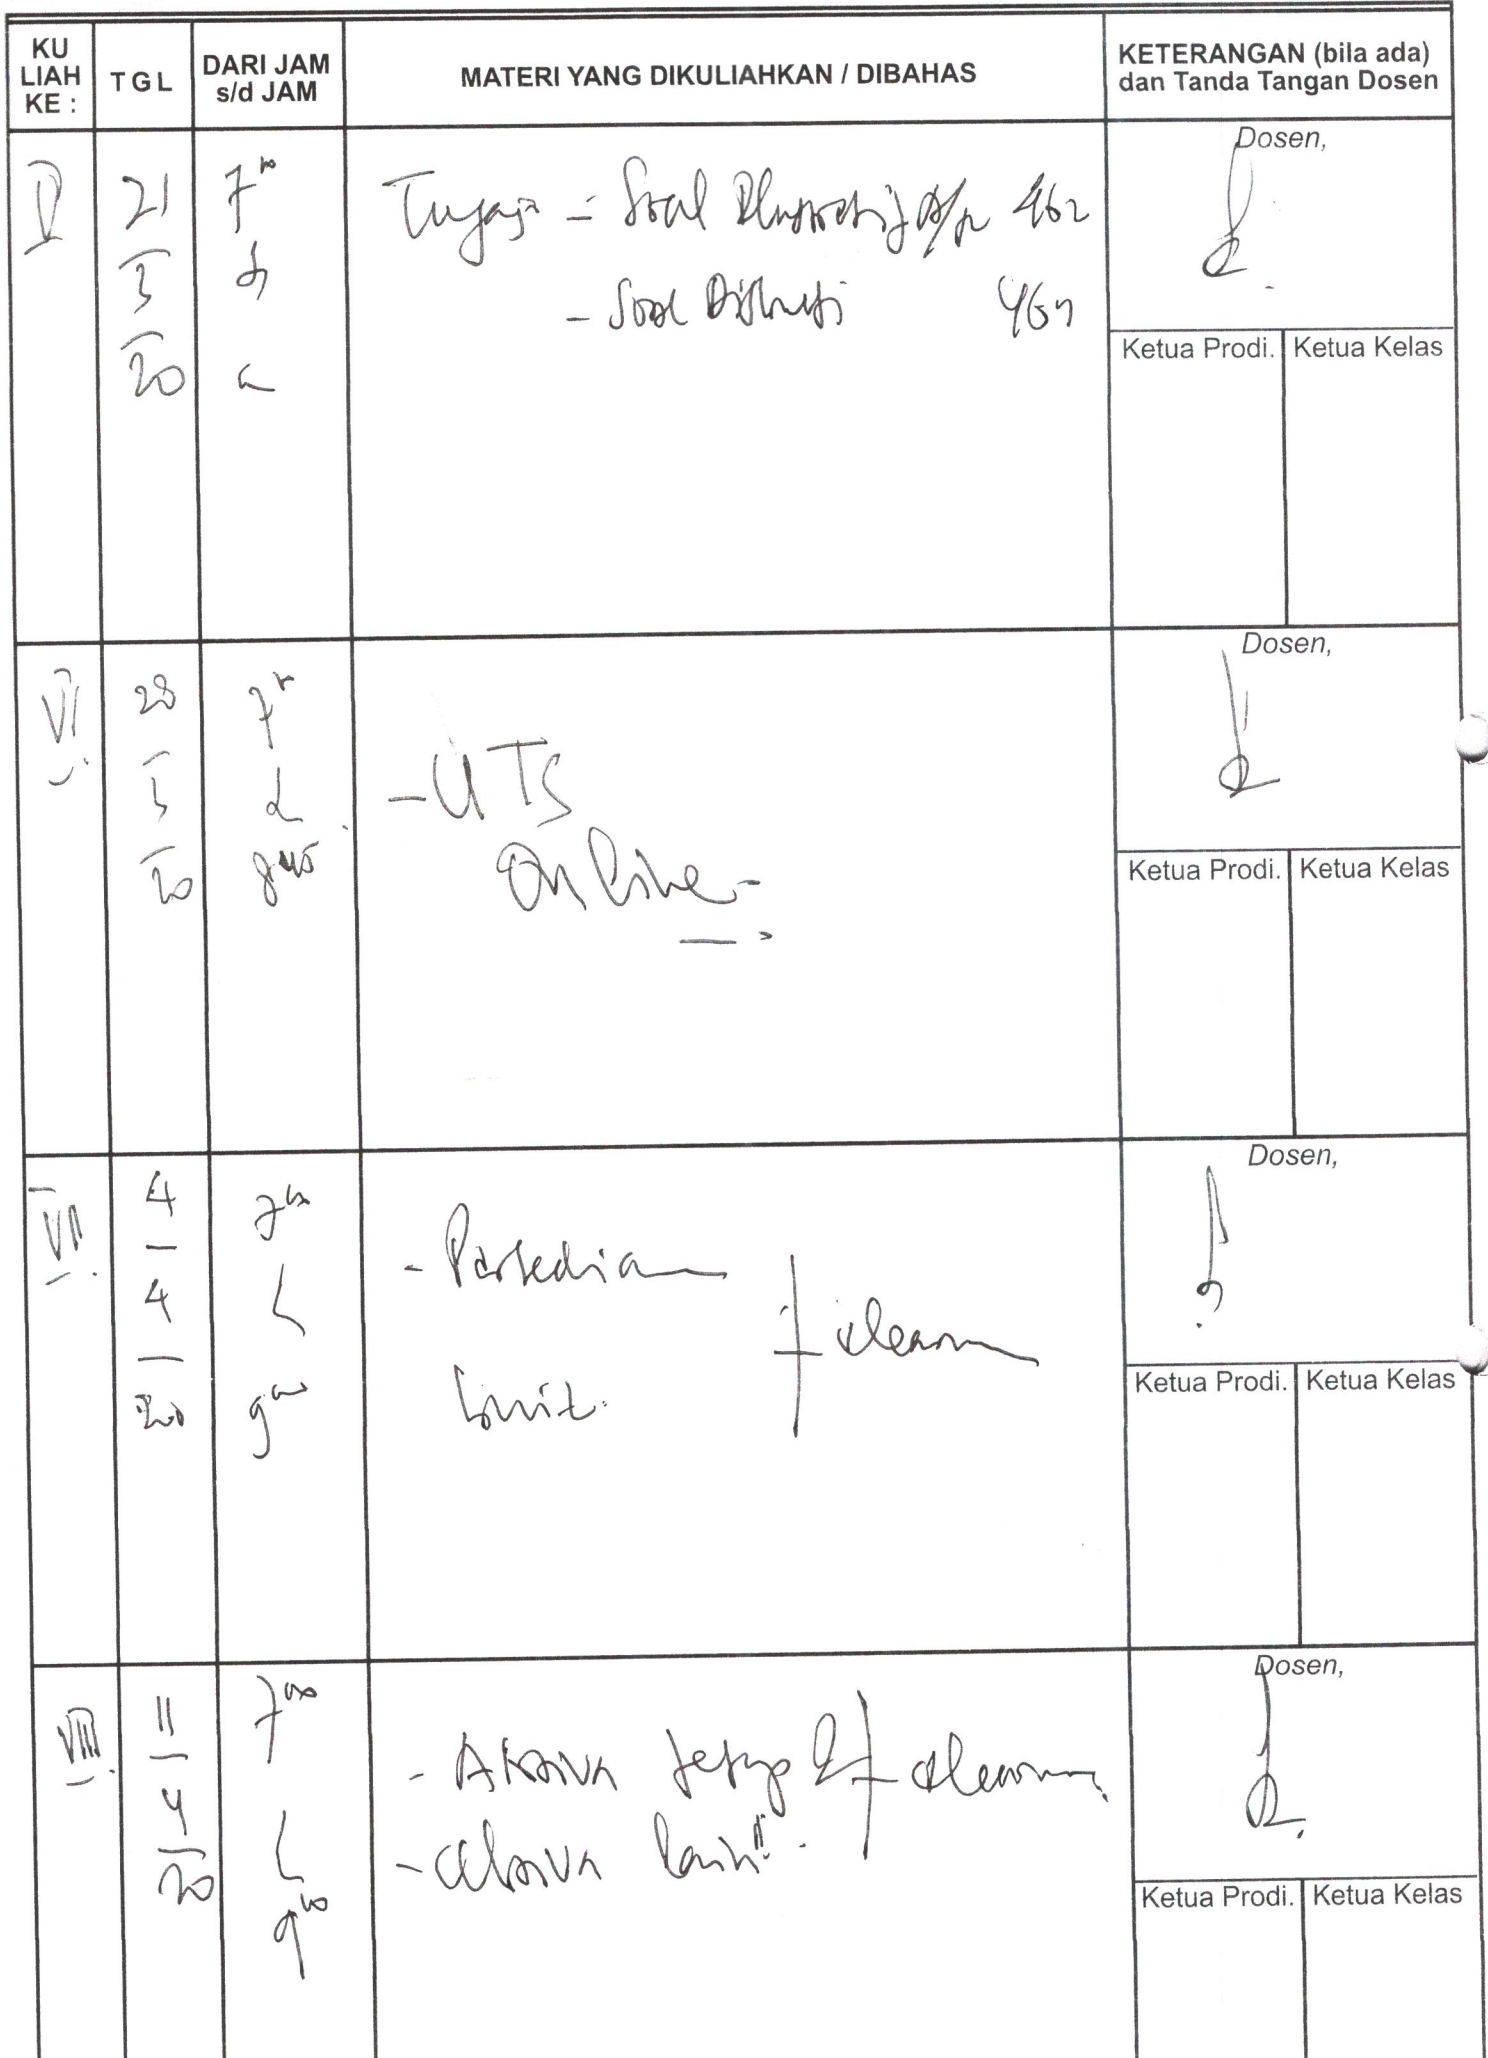 KU LIAH KE :
TGL
DARI JAM s/d JAM
MATERI YANG DIKULIAHKAN / DIBAHAS
KETERANGAN (bila ada) dan Tanda Tangan Dosen
V
21
3
20
Tugas - Soal 462
- Soal Diskusi
Dosen,
Ketua Prodi.
Ketua Kelas
VI
28
3
20
7
8 45
- UTS
Online -
Dosen,
Ketua Prodi.
Ketua Kelas
VII
4
4
20
7 00
9 00
- Persediaan
elearn
Dosen,
Ketua Prodi.
Ketua Kelas
VIII
11
4
20
7 00
9 00
- Aktiva tetap elearn
- aktiva lain"
Dosen,
Ketua Prodi.
Ketua Kelas